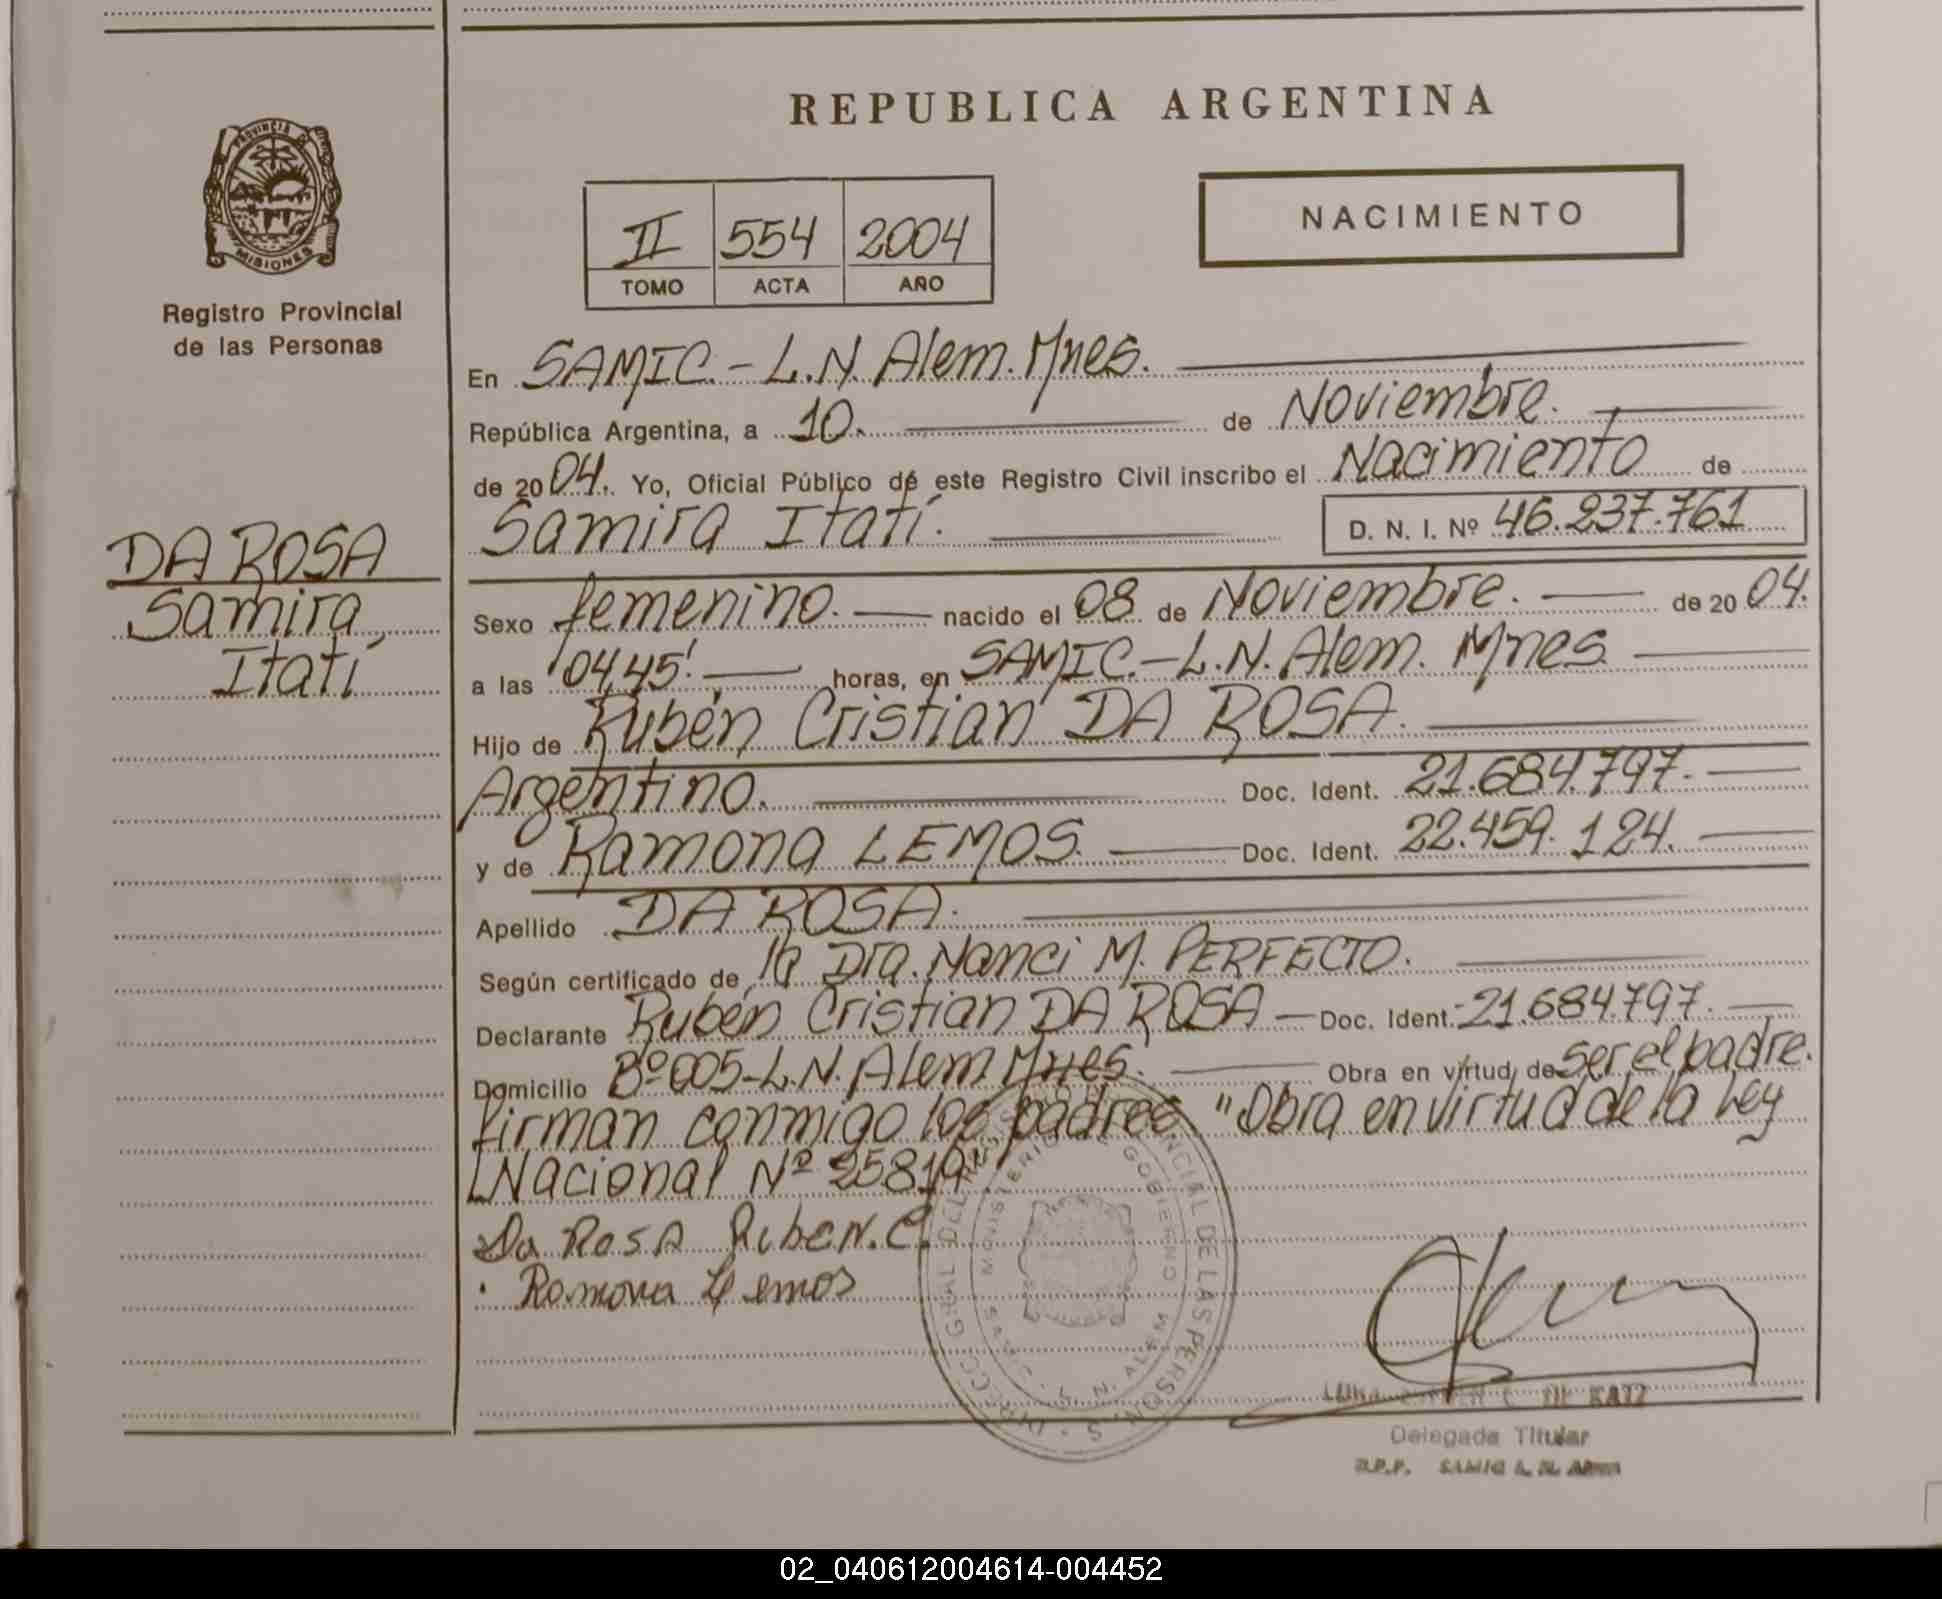 REPUBLICA ARGENTINA
PROVINCIA DE
MISIONES
Registro Provincial
de las Personas
II 554 2004
TOMO ACTA AÑO
NACIMIENTO
En SAMIC.- L.N. Alem. Mnes.
República Argentina, a 10. de Noviembre.
de 2004. Yo, Oficial Público de este Registro Civil inscribo el Nacimiento de
Samira Itatí. D. N. I. Nº 46.237.761
DA ROSA
Samira,
Itatí
Sexo femenino. nacido el 08 de Noviembre. de 2004.
a las 04,45'. horas, en SAMIC.- L.N. Alem. Mnes.
Hijo de Rubén Cristian DA ROSA.
Argentino. Doc. Ident. 21.684.797.
y de Ramona LEMOS. Doc. Ident. 22.459.124.
Apellido DA ROSA.
Según certificado de la Dra. Nanci M. PERFECTO.
Declarante Rubén Cristian DA ROSA Doc. Ident. 21.684.797.
Domicilio Bº 005-L.N. Alem Mnes. Obra en virtud de ser el padre.
firman conmigo los padres. "Obra en virtud de la Ley
Nacional Nº 25819"
Da Rosa Ruben.C.
Ramona Lemos
MINISTERIO GOBIERNO
DIRECC GRAL DEL PROVINCIAL DE LAS PERSONAS
SAMIC. L. N. ALEM
DE KATZ
Delegada Titular
R.P.P. SAMIC L. N. ALEM
02_040612004614-004452